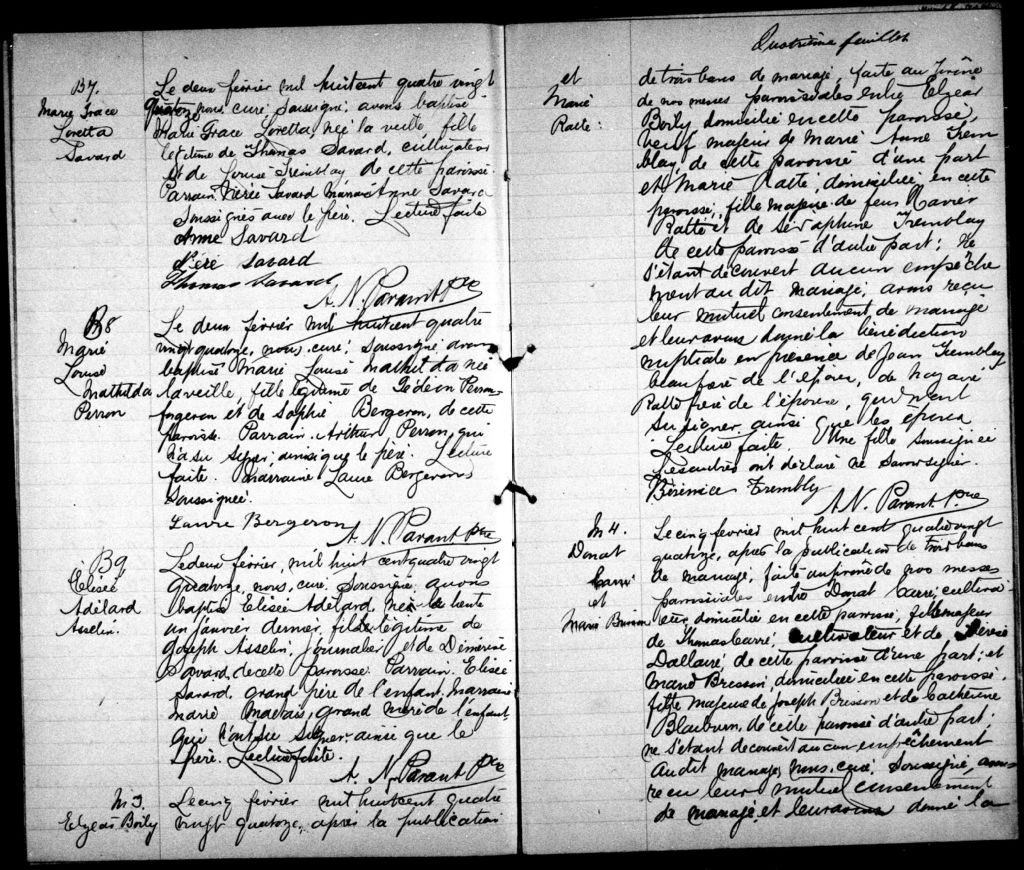 B7.
Marie Grace
Loretta
Savard
Le deux février mil huit cent quatre vingt
quatorze, nous, curé, soussigné, avons baptisé
Marie Grace Loretta, née la veille, fille
légitime de Thomas Savard, cultivateur
et de Louise Tremblay de cette paroisse.
Parrain Nérée Savard Marraine Anne Savard
soussignés avec le père. Lecture faite
Anne Savard
Néré Savard
Thomas Savard
A. N. Parant Ptre
B8
Marie
Louise
Mathilda
Perron
Le deux février mil huit cent quatre
vingt quatorze, nous, curé, soussigné, avons
baptisé Marie Louise Mathilda née
la veille, fille légitime de Gédéon Perron
forgeron et de Sophie Bergeron, de cette
paroisse. Parrain Arthur Perron, qui
n'a su signer, ainsi que le père. Lecture
faite. Marraine Laure Bergeron,
soussignée.
Laure Bergeron
A. N. Parant Ptre
B9
Elisée
Adélard
Asselin.
Le deux février, mil huit cent quatre vingt
quatorze, nous, curé, soussigné, avons
baptisé Elisée Adélard, né le trente
un janvier dernier, fils légitime de
Joseph Asselin, journalier et de Démérise
Savard, de cette paroisse. Parrain Elisée
Savard grand père de l'enfant. Marraine
Marie grand mère de l'enfant
qui n'ont su signer, ainsi que le
père. Lecture faite.
A. N. Parant Ptre
M3.
Elzéar Boily
Le cinq février mil huit cent quatre
vingt quatorze, après la publication
Quatrième feuillet
et
Marie
Ratté:
de trois bans de mariage, faite au prône
de nos messes paroissiales entre Elzéar
Boily domicilié en cette paroisse,
veuf majeur de Marie Anne Trem
blay de cette paroisse d'une part
et Marie Ratté, domiciliée en cette
paroisse, fille majeure de feu Xavier
Ratté et de Séraphine Tremblay
de cette paroisse d'autre part; ne
s'étant découvert aucun empêche
ment au dit mariage, avons reçu
leur mutuel consentement de mariage
et leur avons donné la bénédiction
nuptiale en présence de Jean Tremblay
beau frère de l'époux, de Nazaire
Ratté frère de l'épouse, qui n'ont
su signer, ainsi que les époux
Lecture faite. Une fille soussignée
ont déclaré ne savoir signer.
Bérénice Trembly
A. N. Parant Ptre
M4.
Donat
Carré
et
Marie Brisson
Le cinq février mil huit cent quatre vingt
quatorze, après la publication de trois bans
de mariage, faite au prône de nos messes
paroissiales entre Donat Carré, cultiva-
teur, domicilié en cette paroisse, fils majeur
de Thomas Carré, cultivateur et de
Dallaire, de cette paroisse d'une part; et
Marie Brisson, domiciliée en cette paroisse,
fille majeure de Joseph Brisson et de Catherine
Blackburn, de cette paroisse d'autre part;
ne s'étant découvert aucun empêchement
au dit mariage, nous, curé, soussigné, avons
reçu leur mutuel consentement
de mariage et leur avons donné la